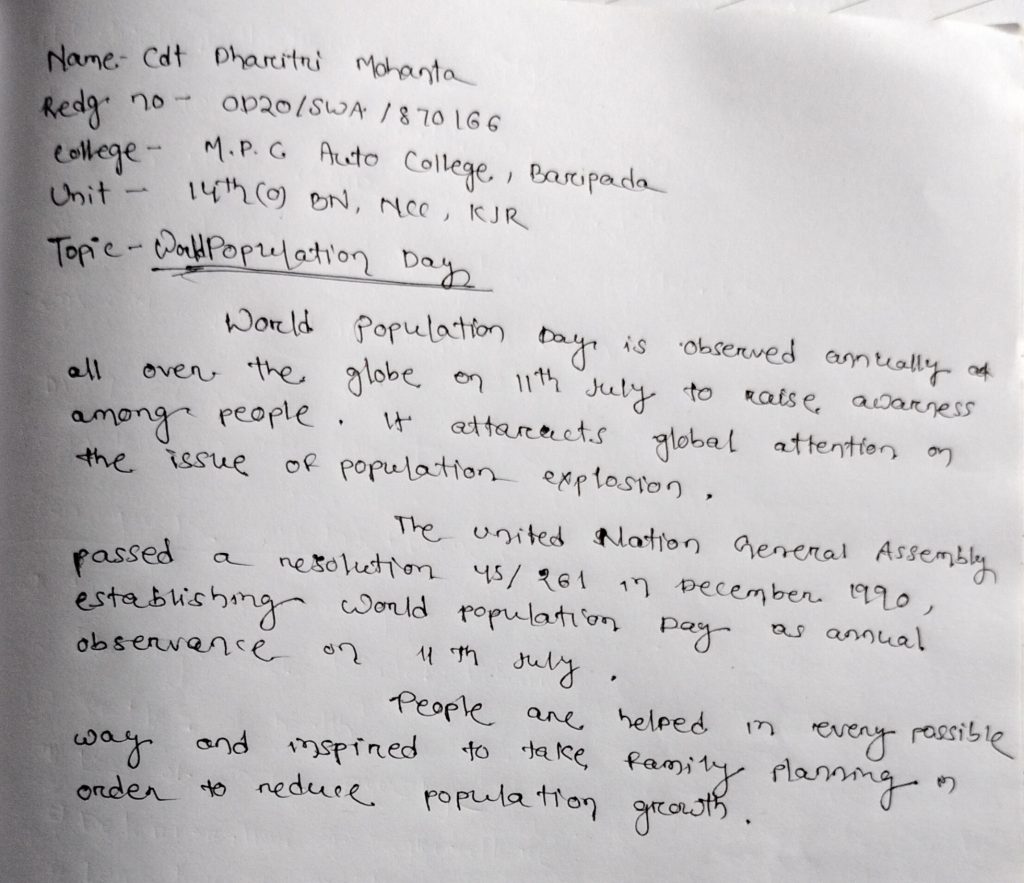 Name- Cdt Dharitri Mohanta
Redg. no - OD20/SWA/870166
College - M.P.C Auto College, Baripada
Unit - 14th(O) BN, NCC, KJR
Topic - World Population Day
World Population Day is observed annually at
all over the globe on 11th July to raise awarness
among people. It attaracts global attention on
the issue of population explosion.
The United Nation General Assembly
passed a resolution 45/261 in December 1990,
establishing World population Day as annual
observance on 11th July.
People are helped in every possible
way and inspired to take family planning in
order to reduce population growth.